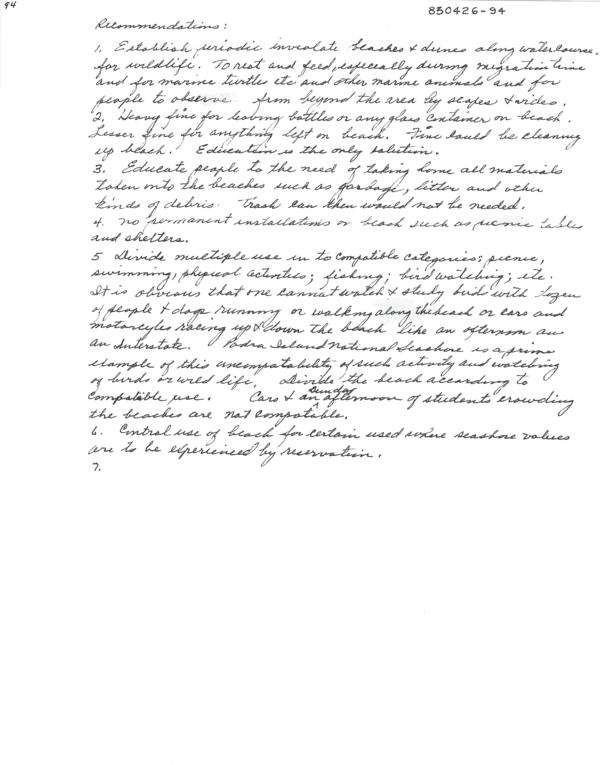 94
850426-94
Recommendations:
1. Establish periodic inviolate beaches & dunes along watercourse
for wildlife. To rest and feed, especially during migration time
and for marine turtles etc and other marine animals and for
people to observe from beyond the area by scopes & video.
2. Heavy fine for leaving bottles or any glass container on beach.
Lesser fine for anything left on beach. Fine could be cleaning
up beach. Education is the only solution.
3. Educate people to the need of taking home all materials
taken onto the beaches such as garbage, litter and other
kinds of debris. Trash can then would not be needed.
4. No permanent installations on beach such as picnic tables
and shelters.
5 Divide multiple use in to compatible categories: picnic,
swimming, physical activities; fishing; bird watching; etc.
It is obvious that one cannot watch & study birds with
of people & dogs running or walking along the beach or cars and
motorcyles racing up & down the beach like an afternoon on
an Interstate. Padre Island National Seashore is a prime
example of this uncompatability of such activity and watching
of birds or wild life. Divide the beach according to
compatible use. Cars & an Sunday afternoon of students crowding
the beaches are not compatable.
6. Control use of beach for certain used where seashore values
are to be experienced by reservation.
7.